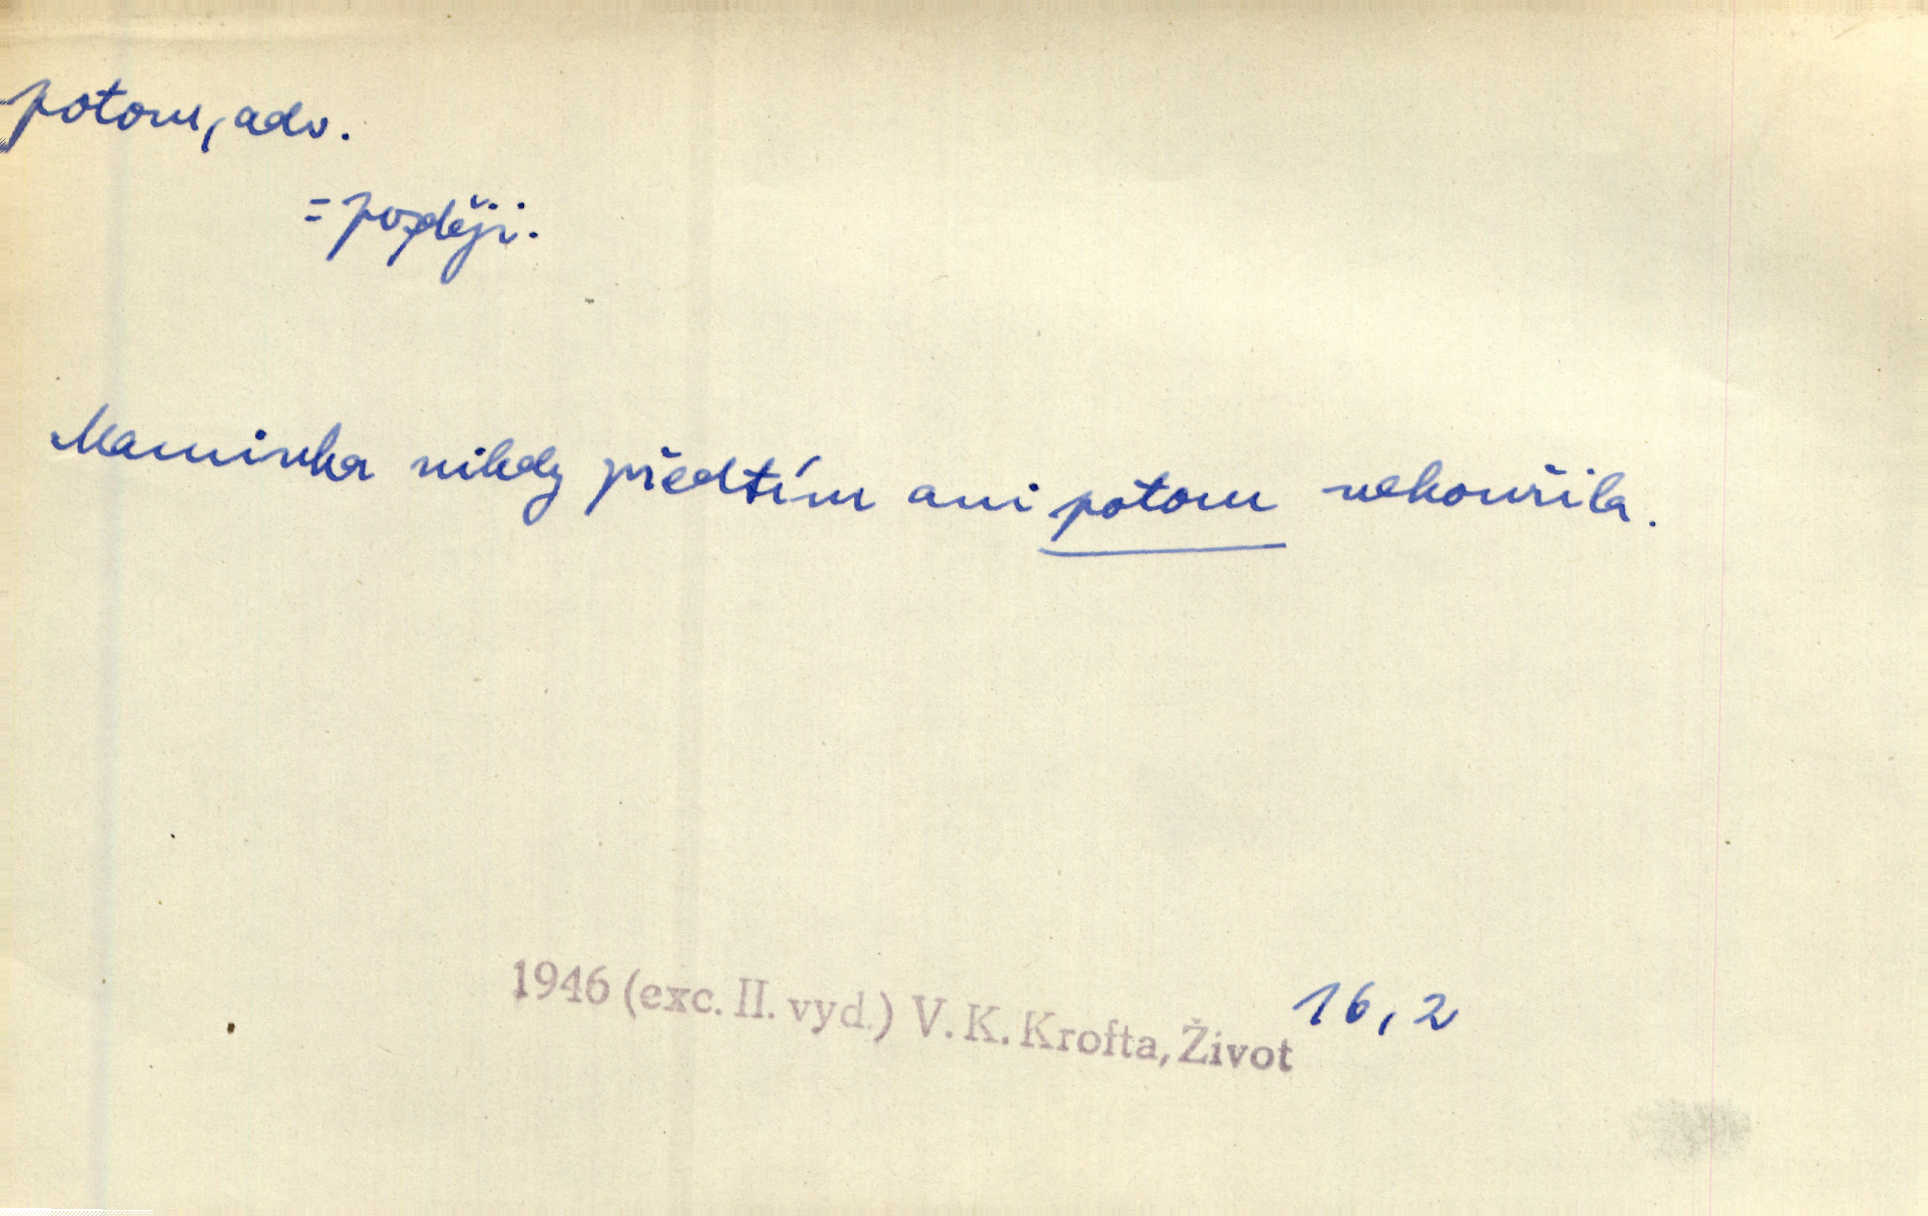 potom, adv.
= později.
Maminka nikdy předtím ani potom nekouřila.
1946 (exc. II. vyd.) V. K. Krofta, Život 16,2